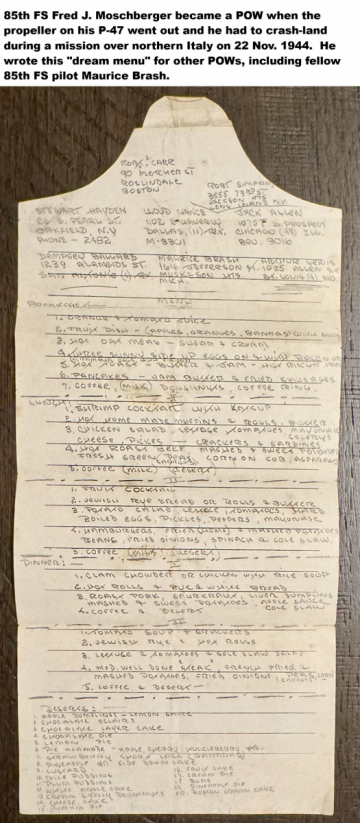 85th FS Fred J. Moschberger became a POW when the
propeller on his P-47 went out and he had to crash-land
during a mission over northern Italy on 22 Nov. 1944. He
wrote this "dream menu" for other POWs, including fellow
85th FS pilot Maurice Brash.
ROBT. CARR
90 FLETCHER ST
ROSLINDALE
BOSTON
ROBT SIMPSON
3555 73RD ST
JACKSON HTS
LONG ISLAND N.Y.
STEWART HAYDEN
26 S. PEARL ST.
OAKFIELD, N.Y
PHONE - 2482
LLOYD NANCE
1102 S. WAVERLY
DALLAS, (11) TEX.
M-8801
JACK ALLEN
10757 S. PROSPECT
CHICAGO (43) ILL.
BEV. 3016
DEMPSEY BALLARD
1239 ALAMEDA ST.
SAN ANTONIO (1) TEX
MAURICE BRASH
1616 JEFFERSON ST.
MUSKEGON HTS.
MICH.
ARTHUR
1925 ALLEN ST
ST. LOUIS (4) MO
MENU
BREAKFAST
1. ORANGE & TOMATO JUICE
2. FRUIT DISH - (APPLES, ORANGES, BANANAS
3. HOT OAT MEAL - SUGAR & CREAM
4. THREE SUNNY SIDE UP EGGS ON
5. HOT TOAST - BUTTER & JAM - HOT BISCUIT
6. PANCAKES - JAM BUTTER & FRIED SAUSAGES
7. COFFEE, (MILK) DOUGHNUTS, COFFEE RING.
LUNCH:
I
1. SHRIMP COCKTAIL WITH KETSUP
2. HOT HOME MADE MUFFINS & ROLLS, BUTTER
3. CHICKEN SALAD LETTUCE TOMATOES MAYONAISE
CELERY
CHEESE, PICKLES - CRACKERS & SARDINES
4. HOT ROAST BEEF MASHED & SWEET POTATOES
FRESH GREEN PEAS, CORN ON COB, ASPARAGUS
5. COFFEE (MILK) DESERT
II
1. FRUIT COCKTAIL
2. JEWISH RYE BREAD OR ROLLS & BUTTER
3. POTATO SALAD, LETTUCE, TOMATOES, HARD
BOILED EGGS, PICKLES, PEPPERS, MAYONAISE
4. HAMBURGERS, FRIED & MASHED POTATOES
BEANS, FRIED ONIONS, SPINACH & COLE SLAW.
5. COFFEE (MILK) DESERT
DINNER:
I
1. CLAM CHOWDER OR CHICKEN WITH RICE SOUP
2. HOT ROLLS & RYE & WHITE BREAD
3. ROAST PORK, SAUERKRAUT, LIVER DUMPLINGS
MASHED & SWEET POTATOES, APPLE SAUCE
COLE SLAW
4. COFFEE & DESERT
II
1. TOMATO SOUP & CRACKERS
2. JEWISH RYE & HOT ROLLS
3. LETTUCE & TOMATOES & COLE SLAW SALAD
4. MED. WELL DONE "STEAK", FRENCH FRIED, &
MASHED POTATOES, FRIED ONIONS
5. COFFEE & DESERT
DESERTS:
1. APPLE DUMPLINGS - LEMON SAUCE
2. CHOCOLATE ECLAIRS
3. CHOCOLATE LAYER CAKE
4. CHOCOLATE PIE
5. LEMON PIE
6. PIE ALAMODE - APPLE CHERRY HUCKLEBERRY
7. STRAWBERRY SHORT CAKE
8. PINEAPPLE UP SIDE DOWN CAKE
9. CUSTARD
10. RICE PUDDING
11. PLUM PUDDING
12. WHITE LAYER CAKE
13. CREAM
14. CHEESE CAKE
15. PUMPKIN PIE
16. FRUIT CAKE
17. CREAM PIE
19. PINEAPPLE PIE
20. BOSTON CREAM CAKE